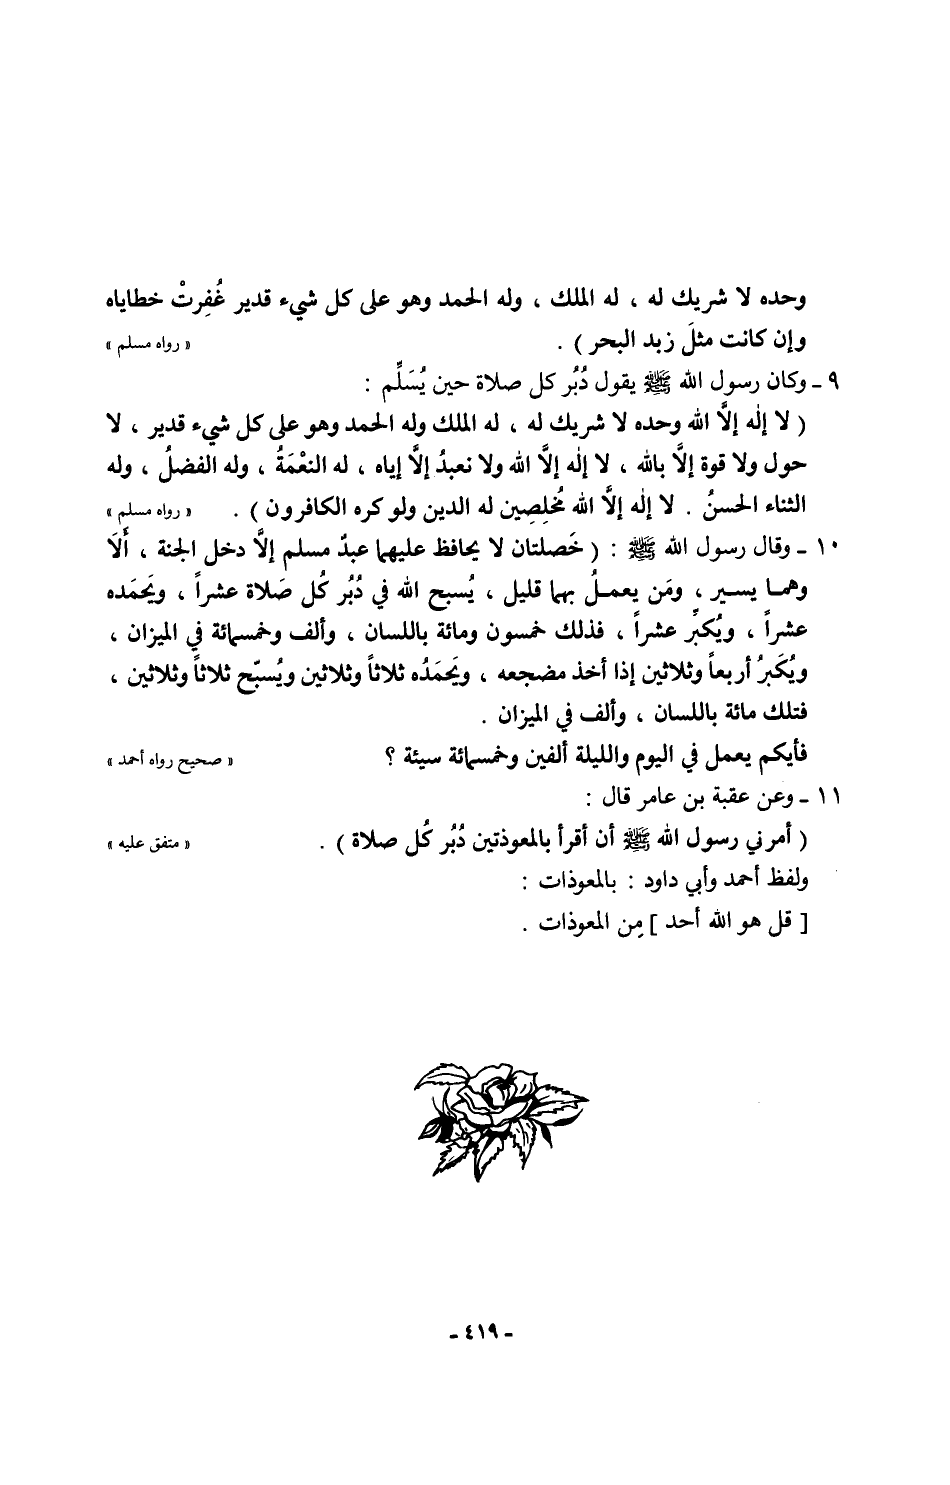 وحده لا شريك له ، له الملك ، وله الحمد وهو على كل شيء قدير غُفِرتْ خطاياه
وإن كانت مثلَ زبد البحر ) . « رواه مسلم »
٩ ـ وكان رسول الله ﷺ يقول دُبُر كل صلاة حين يُسَلِّم :
( لا إله إلاَّ الله وحده لا شريك له ، له الملك وله الحمد وهو على كل شيء قدير ، لا
حول ولا قوة إلاَّ بالله ، لا إله إلاَّ الله ولا نعبدُ إلاَّ إياه ، له النعْمَةُ ، وله الفضلُ ، وله
الثناء الحسنُ . لا إله إلاَّ الله مُخلِصِين له الدين ولو كره الكافرون ) . « رواه مسلم »
١٠ ـ وقال رسول الله ﷺ : ( خَصلتان لا يحافظ عليهما عبدٌ مسلم إلاَّ دخل الجنة ، أَلَا
وهما يسير ، ومَن يعملُ بهما قليل ، يُسبح الله في دُبُر كُل صَلاة عشراً ، ويَحمَده
عشراً ، ويُكبِّر عشراً ، فذلك خمسون ومائة باللسان ، وألف وخمسمائة في الميزان ،
ويُكَبرُ أربعاً وثلاثين إذا أخذ مضجعه ، ويَحمَدُه ثلاثاً وثلاثين ويُسبّح ثلاثاً وثلاثين ،
فتلك مائة باللسان ، وألف في الميزان .
فأيكم يعمل في اليوم والليلة ألفين وخمسمائة سيئة ؟ « صحيح رواه أحمد »
١١ ـ وعن عقبة بن عامر قال :
( أمرني رسول الله ﷺ أن أقرأ بالمعوذتين دُبُر كُل صلاة ) . « متفق عليه »
ولفظ أحمد وأبي داود : بالمعوذات :
[ قل هو الله أحد ] مِن المعوذات .
ـ ٤١٩ ـ